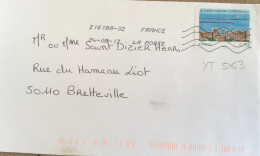 21618A-02 FRANCE
24-08-17 LA POSTE
Mr ou Mme Saint Dizier Henri
Rue du Hameau Liot
50110 Bretteville
YT 5163